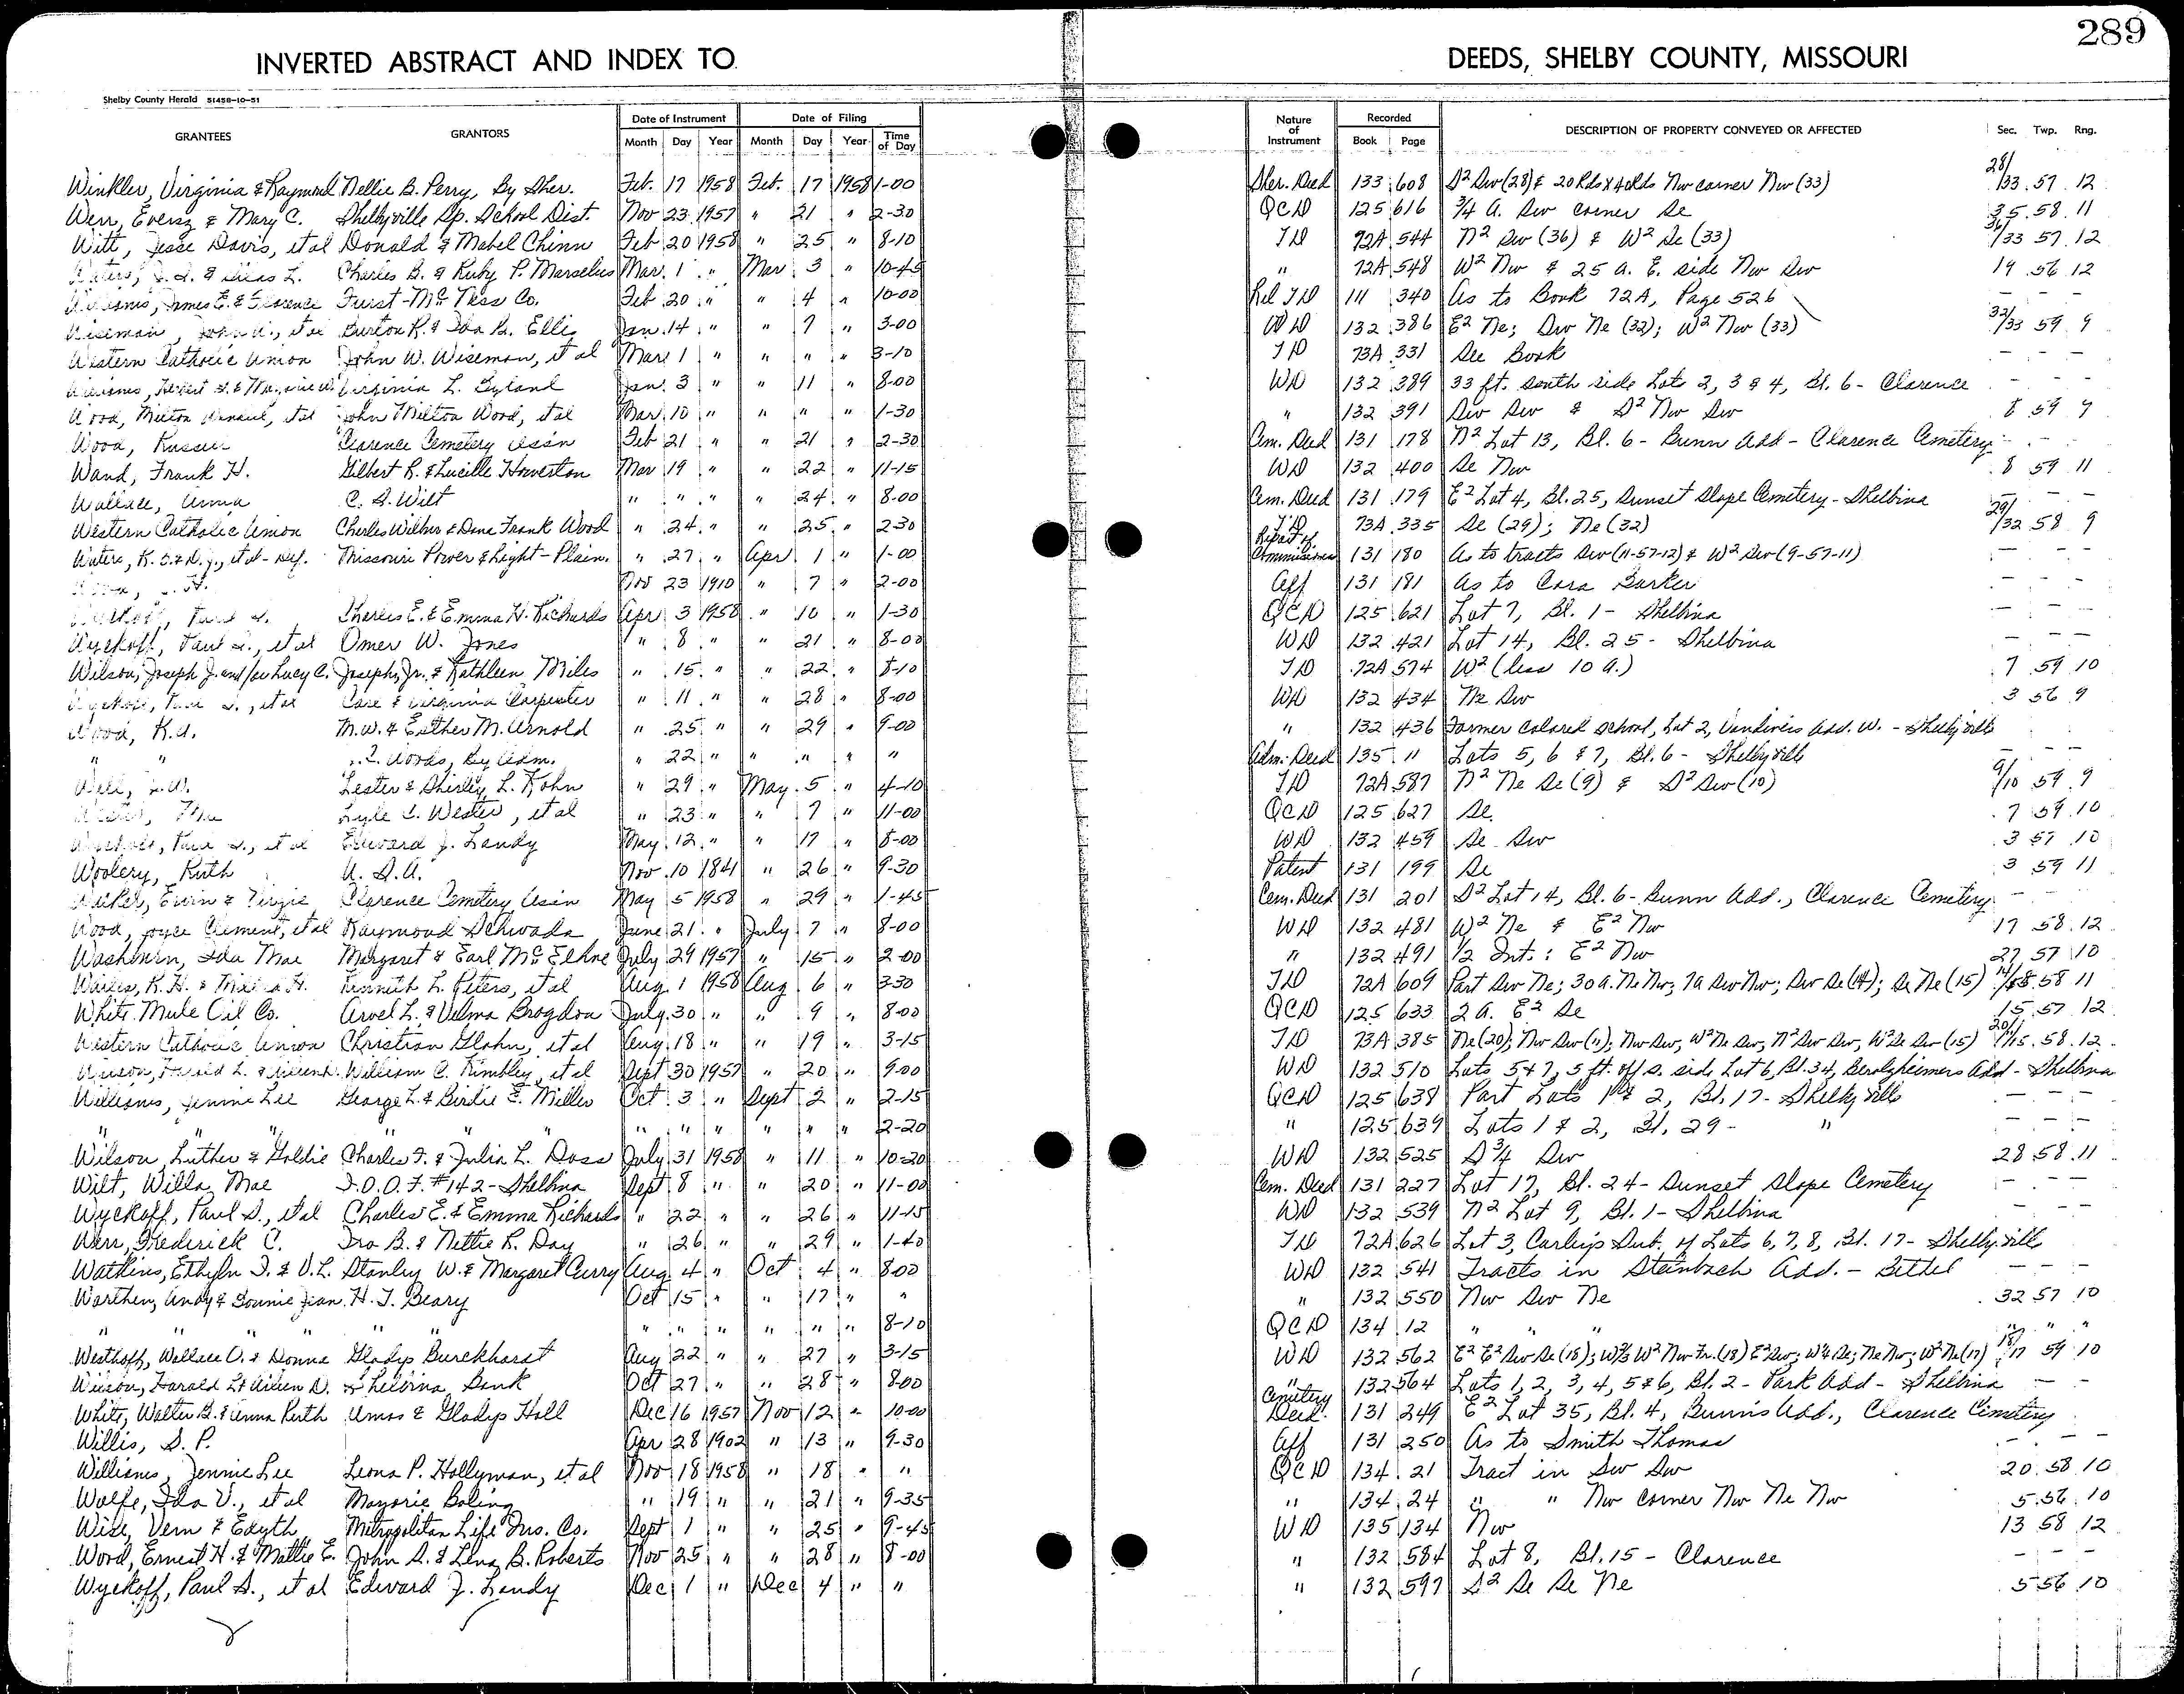 289
INVERTED ABSTRACT AND INDEX TO DEEDS, SHELBY COUNTY, MISSOURI
Shelby County Herald 51458-10-51
GRANTEES GRANTORS Date of Instrument Date of Filing Nature of Instrument Recorded DESCRIPTION OF PROPERTY CONVEYED OR AFFECTED Sec. Twp. Rng.
Month Day Year Month Day Year Time of Day Book Page
Winkler, Virginia & Raymond Nellie B. Perry, By Sher. Feb. 17 1958 Feb. 17 1958 1-00 Sher. Deed 133 608 S2 Sw (28) & 20 Rds x 40 Rds Nw corner Nw (33) 28/33 57 12
Werr, Eversz & Mary C. Shelbyville Sp. School Dist. Nov 23 1957 " 21 " 2-30 QCD 125 616 3/4 a. Sw corner Se 35 58 11
Witt, Jesse Davis, et al Donald & Mabel Chinn Feb 20 1958 " 25 " 8-10 TD 72A 544 N2 Sw (36) & W2 Se (33) 36/33 57 12
Charles B. & Ruby P. Marselus Mar. 1 " Mar 3 " 10-45 " 72A 548 W2 Nw & 25 a. E. side Nw Sw 19 56 12
James E. & Florence Furst-McNess Co. Feb 20 " " 4 " 10-00 Rel TD 111 340 As to Book 72A, Page 526 - - -
Wiseman, John W., et al Burton R. & Ida B. Ellis Jan. 14 " " 7 " 3-00 WD 132 386 E2 Ne; Sw Ne (32); W2 Nw (33) 32/33 59 9
Western Catholic Union John W. Wiseman, et al Mar. 1 " " " " 3-10 TD 73A 331 See Book - - -
Virginia L. Byland Jan. 3 " " 11 " 8-00 WD 132 389 33 ft. south side Lots 2, 3 & 4, Bl. 6 - Clarence - - -
Wood, Milton, et al John Milton Wood, et al Mar. 10 " " " " 1-30 " 132 391 Sw Sw & S2 Nw Sw 8 59 9
Wood, Russell Clarence Cemetery Ass'n Feb 21 " " 21 " 2-30 Cem. Deed 131 178 N2 Lot 13, Bl. 6 - Bunn Add - Clarence Cemetery - - -
Wand, Frank H. Gilbert R. & Lucille Howerton Mar 19 " " 22 " 11-15 WD 132 400 Se Nw 8 59 11
Wallace, Anna C. S. Wilt " " " " 24 " 8.00 Cem. Deed 131 179 E2 Lot 4, Bl. 25, Sunset Slope Cemetery - Shelbina - - -
Western Catholic Union Charles Wilber & Dona Frank Wood " 24 " " 25 " 2-30 TD 73A 335 Se (29); Ne (32) 29/32 58 9
Waters, et al - Def. Missouri Power & Light - Plain. " 27 " Apr. 1 " 1-00 Report of Commissioners 131 180 As to tracts Sw (11-57-12) & W2 Sw (9-57-11) - - -
Nov 23 1910 " 7 " 2-00 Aff 131 181 As to Cora Barker - - -
Wyckoff, Paul S. Charles E. & Emma H. Richards Apr 3 1958 " 10 " 1-30 QCD 125 621 Lot 7, Bl. 1 - Shelbina - - -
Wyckoff, Paul S., et al Omer W. Jones " 8 " " 21 " 8-00 WD 132 421 Lot 14, Bl. 25 - Shelbina - - -
Wilson, Joseph J. and/or Lucy C. Joseph, Jr. & Kathleen Miles " 15 " " 22 " 8-10 TD 72A 574 W2 (less 10 a.) 7 59 10
Wyckoff, Paul S., et al & Virginia Carpenter " 11 " " 28 " 8-00 WD 132 434 Ne Sw 3 56 9
Wood, R.A. M.W. & Esther M. Arnold " 25 " " 29 " 9-00 " 132 436 Former colored school, Lot 2, Vandivers Add. W. - Shelbyville
" " Woods, By Adm. " 22 " " " " " Adm. Deed 135 11 Lots 5, 6 & 7, Bl. 6 - Shelbyville - - -
Lester & Shirley L. Kohn " 29 " May 5 " 4-10 TD 72A 587 N2 Ne Se (9) & S2 Sw (10) 9/10 59 9
Lyle C. Wester, et al " 23 " " 7 " 11-00 QCD 125 627 Se 7 59 10
Wyckoff, Paul S., et al Edward J. Landy May 12 " " 17 " 8-00 WD 132 459 Se Sw 3 57 10
Woolery, Ruth U. S. A. Nov. 10 1841 " 26 " 9-30 Patent 131 199 Se 3 59 11
Ervin & Virgie Clarence Cemetery Ass'n May 5 1958 " 29 " 1-45 Cem. Deed 131 201 S2 Lot 14, Bl. 6 - Bunn Add., Clarence Cemetery -
Wood, Joyce Clement, et al Raymond Schwada June 21 " July 7 " 8-00 WD 132 481 W2 Ne & E2 Nw 17 58 12
Washburn, Ida Mae Margaret & Earl McElhne July 29 1957 " 15 " 2-00 " 132 491 1/2 Int.: E2 Nw 27 57 10
Kenneth L. Peters, et al Aug. 1 1958 Aug 6 " 330 TD 72A 609 Part Sw Ne; 30 a. Ne Nw; 7a Sw Nw; Sw Se (14); Se Ne (15) 14/15 58 11
White Mule Oil Co. Arvel L. & Velma Brogdon July 30 " " 9 " 8-00 QCD 125 633 2 a. E2 Se 15 57 12
Western Catholic Union Christian Glahn, et al Aug. 18 " " 19 " 3-15 TD 73A 385 Ne (20); Nw Sw (11); Nw Sw, W2 Ne Sw, N2 Sw Sw, W2 Se Sw (15) 20/11/15 58 12
William C. Kimbley, et al Sept 30 1957 " 20 " 9-00 WD 132 510 Lots 5 & 7, 5 ft. off s. side Lot 6, Bl. 34, Berolzheimers Add - Shelbina
Williams, Jennie Lee George L. & Birdie E. Miller Oct. 3 " Sept 2 " 2-15 QCD 125 638 Part Lots 1 & 2, Bl. 17 - Shelbyville - - -
" " " " " " " " " " " " 2-20 " 125 639 Lots 1 & 2, Bl. 29 - " - - -
Wilson, Luther & Goldie Charles F. & Julia L. Doss July 31 1958 " 11 " 10-20 WD 132 525 S 3/4 Sw 28 58 11
Wilt, Willa Mae I.O.O.F. #142 - Shelbina Sept 8 " " 20 " 11-00 Cem. Deed 131 227 Lot 17, Bl. 24 - Sunset Slope Cemetery - - -
Wyckoff, Paul S., et al Charles E. & Emma Richards " 22 " " 26 " 11-15 WD 132 539 N2 Lot 9, Bl. 1 - Shelbina - - -
Werr, Frederick C. Ira B. & Nettie R. Day " 26 " " 29 " 1-40 TD 72A 626 Lot 3, Sub. of Lots 6, 7, 8, Bl. 17 - Shelbyville
Watkins, Ethyln I. & V.L. Stanley W. & Margaret Curry Aug 4 " Oct 4 " 8.00 WD 132 541 Tracts in Steinbach Add. - Bethel - - -
Warthen, Andy & Bonnie Jean H. T. Beary Oct 15 " " 17 " " " 132 550 Nw Sw Ne 32 57 10
" " " " " " " " " " " " 8-10 QCD 134 12 " " " " " "
Westhoff, Wallace O. & Donna Gladys Burckhardt Aug 22 " " 27 " 3-15 WD 132 562 E2 E2 Sw Se (18); W2/3 W2 Nw Fr. (18) E2 Sw; W2 Se; Ne Nw; W2 Ne (17) 18/17 59 10
Wilson, Harald L & Aileen D. Shelbina Bank Oct 27 " " 28 " 8-00 " 132 564 Lots 1, 2, 3, 4, 5 & 6, Bl. 2 - Park Add - Shelbina - -
White, Walter B. & Anna Ruth Amos & Gladys Hall Dec 16 1957 Nov 12 " 10-00 Cemetery Deed. 131 249 E2 Lot 35, Bl. 4, Bunn's Add., Clarence Cemetery
Willis, S. P. Apr 28 1902 " 13 " 9-30 Aff 131 250 As to Smith Thomas - - -
Williams, Jennie Lee Leona P. Hollyman, et al Nov 18 1958 " 18 " " QCD 134 21 Tract in Sw Sw 20 58 10
Wolfe, Ida V., et al Marjorie Boling " 19 " " 21 " 9-35 " 134 24 " " Nw corner Nw Ne Nw 5 56 10
Wise, Vern & Edyth Metropolitan Life Ins. Co. Sept 1 " " 25 " 9-45 WD 135 134 Nw 13 58 12
Wood, Ernest H. & Mattie E. John S. & Lena B. Roberts Nov 25 " " 28 " 8-00 " 132 584 Lot 8, Bl. 15 - Clarence - - -
Wyckoff, Paul S., et al Edward J. Landy Dec 1 " Dec 4 " " " 132 597 S2 Se Se Ne 5 56 10